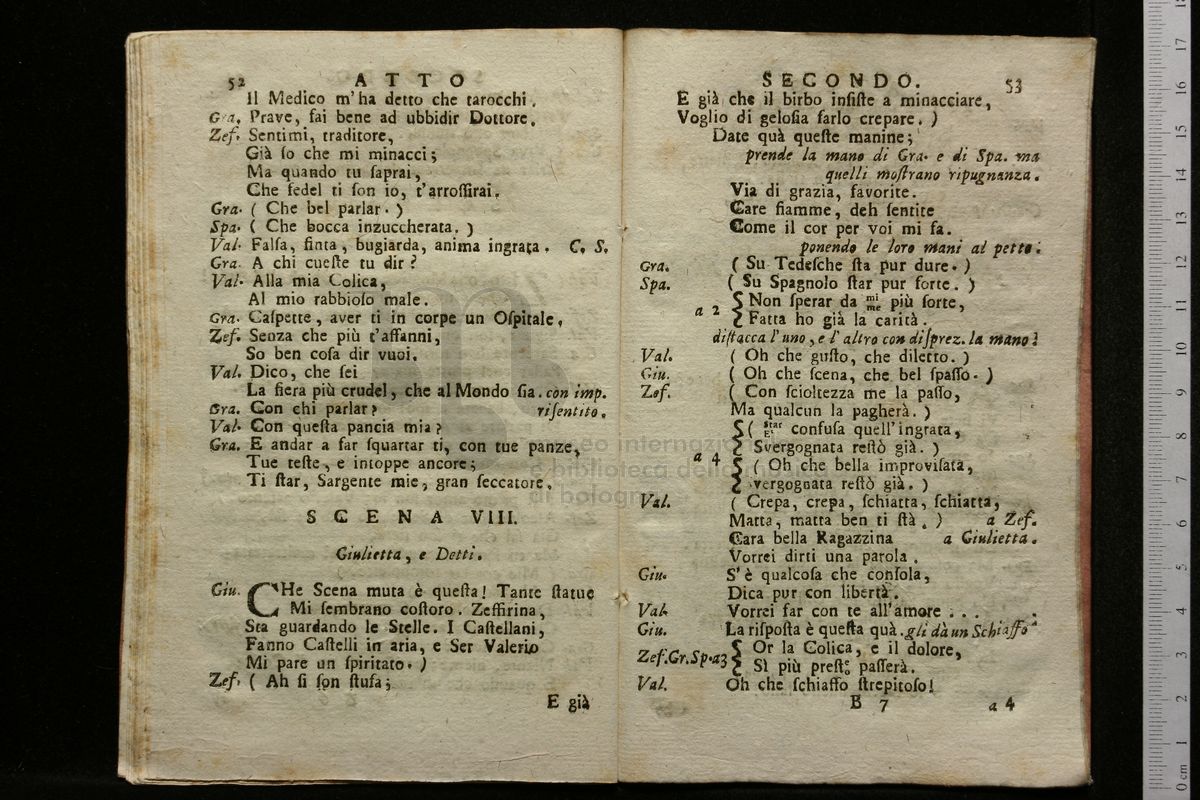 52 ATTO
Il Medico m'ha detto che tarocchi.
Gra. Prave, fai bene ad ubbidir Dottore.
Zef. Sentimi, traditore,
Già ſo che mi minacci;
Ma quando tu ſaprai,
Che fedel ti ſon io, t'arroſſirai.
Gra. ( Che bel parlar. )
Spa. ( Che bocca inzuccherata. )
Val. Falſa, finta, bugiarda, anima ingrata. C. S.
Gra. A chi cueſte tu dir?
Val. Alla mia Colica,
Al mio rabbioſo male.
Gra. Caſpette, aver ti in corpe un Oſpitale,
Zef. Senza che più t'affanni,
So ben coſa dir vuoi.
Val. Dico, che ſei
La fiera più crudel, che al Mondo ſia. con imp.
Gra. Con chi parlar? riſentito.
Val. Con queſta pancia mia?
Gra. E andar a far ſquartar ti, con tue panze,
Tue teſte, e intoppe ancore;
Ti ſtar, Sargente mie, gran ſeccatore.
SCENA VIII.
Giulietta, e Detti.
Giu. CHe Scena muta è queſta! Tante ſtatue
Mi ſembrano coſtoro. Zeffirina,
Sta guardando le Stelle. I Caſtellani,
Fanno Caſtelli in aria, e Ser Valerio
Mi pare un ſpiritato. )
Zef. ( Ah ſi ſon ſtufa;
E già
SECONDO. 53
E già che il birbo inſiſte a minacciare,
Voglio di geloſia farlo crepare. )
Date quà queſte manine;
prende la mano di Gra. e di Spa. ma
quelli moſtrano ripugnanza.
Via di grazia, favorite.
Care fiamme, deh ſentite
Come il cor per voi mi fa.
ponendo le loro mani al petto:
Gra. ( Su Tedeſche ſta pur dure. )
Spa. ( Su Spagnolo ſtar pur forte. )
a 2 { Non ſperar da mi me più ſorte,
{ Fatta ho già la carità.
diſtacca l'uno, e l'altro con diſprez. la mano:
Val. ( Oh che guſto, che diletto. )
Giu. ( Oh che ſcena, che bel ſpaſſo. )
Zef. ( Con ſcioltezza me la paſſo,
Ma qualcun la pagherà. )
{ ( Star E' confuſa quell'ingrata,
{ Svergognata reſtò già. )
a 4 { ( Oh che bella improviſata,
{ vergognata reſtò già. )
Val. ( Crepa, crepa, ſchiatta, ſchiatta,
Matta, matta ben ti ſtà. ) a Zef.
Cara bella Ragazzina a Giulietta.
Vorrei dirti una parola.
Giu. S'è qualcoſa che conſola,
Dica pur con libertà.
Val. Vorrei far con te all'amore . . . .
Giu. La riſpoſta è queſta quà. gli dà un Schiaffo
Zef.Gr.Sp.a3 { Or la Colica, e il dolore,
{ Sì più preſto paſſerà.
Val. Oh che ſchiaffo ſtrepitoſo!
B 7 a 4
museo internazionale
e biblioteca della musica
di bologna
0 cm 1 2 3 4 5 6 7 8 9 10 11 12 13 14 15 16 17 18